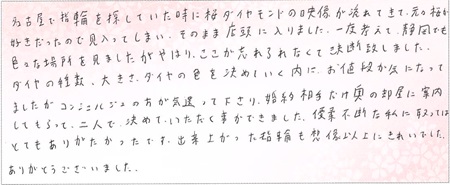 名古屋で指輪を探していた時に桜ダイヤモンドの映像が流れてきて、元々桜が
好きだったので見入ってしまい、そのまま店頭に入りました。一度考えて、静岡でも
色々な場所を見ましたがやはり、ここが忘れられなくて決断致しました。
ダイヤの種類、大きさ、ダイヤの色を決めていく内に、お値段が気になって
ましたがコンシェルジュの方が気遣って下さり、婚約相手だけ奥の部屋に案内
してもらって、二人で、決めていただく事ができました。優柔不断な私に取っては
とてもありがたかったです。出来上がった指輪も想像以上にきれいでした。
ありがとうございました。